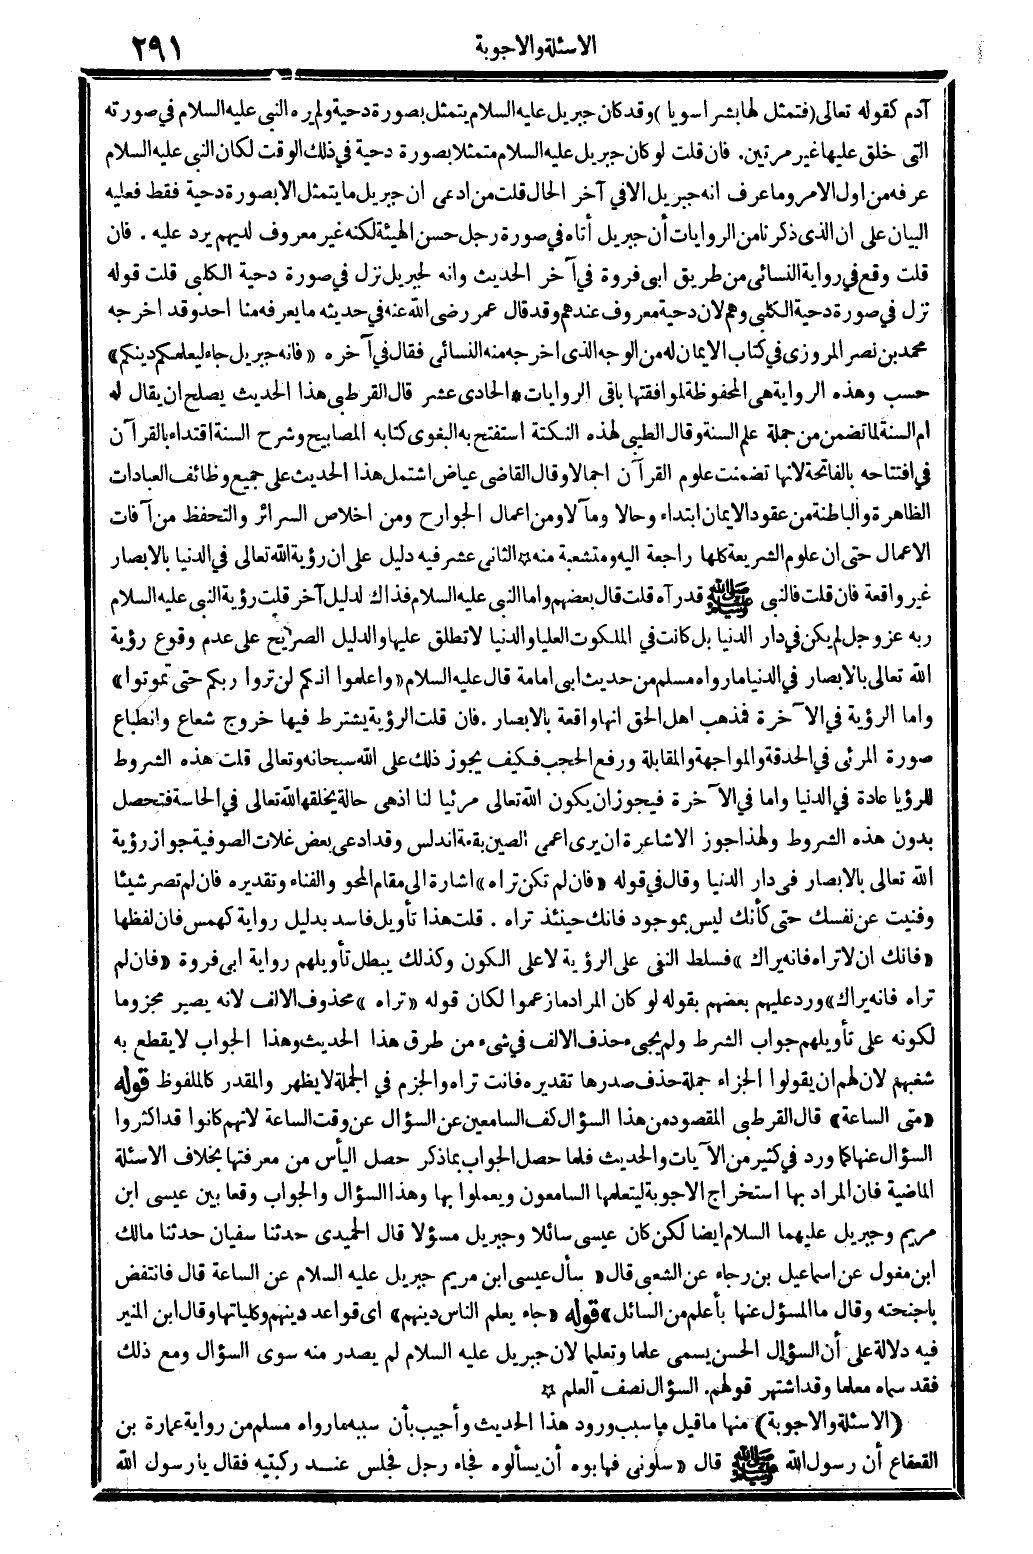 الاسئلة والاجوبة
٢٩١
آدم كقوله تعالى (فتمثل لها بشرا سويا) وقد كان جبريل عليه السلام يتمثل بصورة دحية ولم يره النبى عليه السلام في صورته
التى خلق عليها غير مرتين. فان قلت لو كان جبريل عليه السلام متمثلا بصورة دحية في ذلك الوقت لكان النبى عليه السلام
عرفه من اول الامر وما عرف انه جبريل الا في آخر الحال قلت من ادعى ان جبريل ما يتمثل الا بصورة دحية فقط فعليه
البيان على ان الذى ذكرنا من الروايات أن جبريل أتاه في صورة رجل حسن الهيئة لكنه غير معروف لديهم يرد عليه . فان
قلت وقع في رواية النسائى من طريق ابى فروة في آخر الحديث وانه لجبريل نزل في صورة دحية الكلبى قلت قوله
نزل في صورة دحية الكلبى وهم لان دحية معروف عندهم وقد قال عمر رضى الله عنه في حديثه ما يعرفه منا احد وقد اخرجه
محمد بن نصر المروزى في كتاب الايمان له من الوجه الذى اخرجه منه النسائى فقال في آخره «فانه جبريل جاء ليعلمكم دينكم»
حسب وهذه الرواية هى المحفوظة لموافقتها باقى الروايات * الحادى عشر قال القرطبى هذا الحديث يصلح ان يقال له
ام السنة لما تضمن من جملة علم السنة وقال الطيبى لهذه النكتة استفتح به البغوى كتابه المصابيح وشرح السنة اقتداء بالقرآن
في افتتاحه بالفاتحة لانها تضمنت علوم القرآن اجمالا وقال القاضى عياض اشتمل هذا الحديث على جميع وظائف العبادات
الظاهرة والباطنة من عقود الايمان ابتداء وحالا ومآلا ومن اعمال الجوارح ومن اخلاص السرائر والتحفظ من آفات
الاعمال حتى ان علوم الشريعة كلها راجعة اليه ومتشعبة منه * الثانى عشر فيه دليل على ان رؤية الله تعالى في الدنيا بالابصار
غير واقعة فان قلت فالنبى ﷺ قد رآه قلت قال بعضهم واما النبى عليه السلام فذاك لدليل آخر قلت رؤية النبى عليه السلام
ربه عز وجل لم يكن في دار الدنيا بل كانت في الملكوت العليا والدنيا لا تطلق عليها والدليل الصريح على عدم وقوع رؤية
الله تعالى بالابصار في الدنيا ما رواه مسلم من حديث ابى امامة قال عليه السلام «واعلموا انكم لن تروا ربكم حتى تموتوا»
واما الرؤية في الآخرة فمذهب اهل الحق انها واقعة بالابصار . فان قلت الرؤية يشترط فيها خروج شعاع وانطباع
صورة المرئى في الحدقة والمواجهة والمقابلة ورفع الحجب فكيف يجوز ذلك على الله سبحانه وتعالى قلت هذه الشروط
للرؤيا عادة في الدنيا واما في الآخرة فيجوز ان يكون الله تعالى مرئيا لنا اذ هى حالة يخلقها الله تعالى في الحاسة فتحصل
بدون هذه الشروط ولهذا جوز الاشاعرة ان يرى اعمى الصين بقة اندلس وقد ادعى بعض غلات الصوفية جواز رؤية
الله تعالى بالابصار فى دار الدنيا وقال في قوله «فان لم تكن تراه» اشارة الى مقام المحو والفناء وتقديره فان لم تصر شيئا
وفنيت عن نفسك حتى كأنك ليس بموجود فانك حينئذ تراه . قلت هذا تأويل فاسد بدليل رواية كهمس فان لفظها
«فانك ان لا تراه فانه يراك» فسلط النفى على الرؤية لا على الكون وكذلك يبطل تأويلهم رواية ابى فروة «فان لم
تراه فانه يراك» ورد عليهم بعضهم بقوله لو كان المراد ما زعموا لكان قوله «تراه» محذوف الالف لانه يصير مجزوما
لكونه على تأويلهم جواب الشرط ولم يجىء حذف الالف في شىء من طرق هذا الحديث وهذا الجواب لا يقطع به
شغبهم لان لهم ان يقولوا الجزاء جملة حذف صدرها تقديره فانت تراه والجزم في الجملة لا يظهر والمقدر كالملفوظ قوله
«متى الساعة» قال القرطبى المقصود من هذا السؤال كف السامعين عن السؤال عن وقت الساعة لانهم كانوا قد اكثروا
السؤال عنها كما ورد في كثير من الآيات والحديث فلما حصل الجواب بما ذكر حصل اليأس من معرفتها بخلاف الاسئلة
الماضية فان المراد بها استخراج الاجوبة ليتعلمها السامعون ويعملوا بها وهذا السؤال والجواب وقعا بين عيسى ابن
مريم وجبريل عليهما السلام ايضا لكن كان عيسى سائلا وجبريل مسؤلا قال الحميدى حدثنا سفيان حدثنا مالك
ابن مغول عن اسماعيل بن رجاء عن الشعبى قال «سأل عيسى ابن مريم جبريل عليه السلام عن الساعة قال فانتفض
باجنحته وقال ما المسؤل عنها بأعلم من السائل» قوله «جاء يعلم الناس دينهم» اى قواعد دينهم وكلياتها وقال ابن المنير
فيه دلالة على أن السؤال الحسن يسمى علما وتعليما لان جبريل عليه السلام لم يصدر منه سوى السؤال ومع ذلك
فقد سماه معلما وقد اشتهر قولهم. السؤال نصف العلم *
(الاسئلة والاجوبة) منها ما قيل ما سبب ورود هذا الحديث وأجيب بأن سببه ما رواه مسلم من رواية عمارة بن
القعقاع أن رسول الله ﷺ قال «سلونى فهابوه أن يسألوه فجاء رجل فجلس عند ركبتيه فقال يا رسول الله